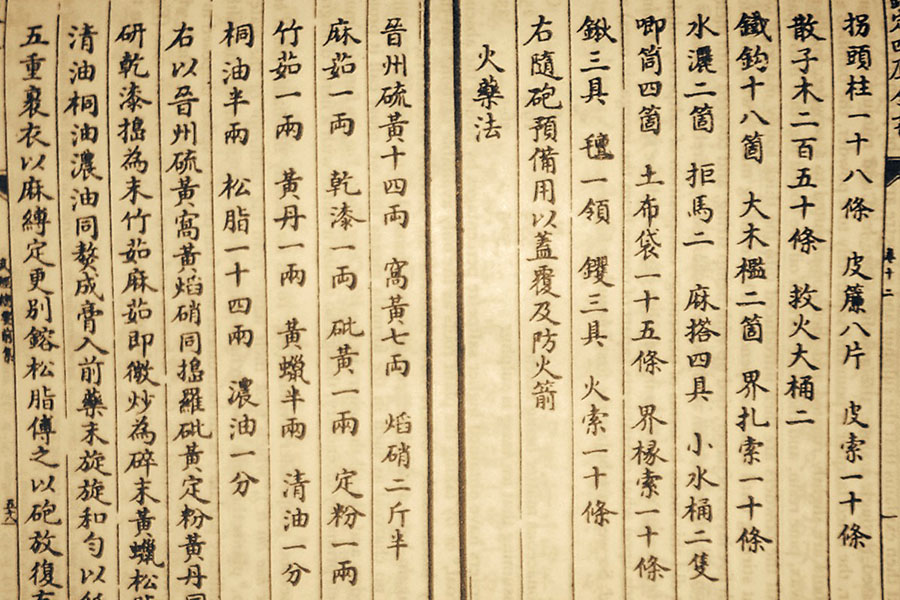 拐頭柱一十八條　皮簾八片　皮索一十條
散子木二百五十條　救火大桶二
鐵鈎十八箇　大木檻二箇　界扎索一十條
水濃二箇　拒馬二　麻搭四具　小水桶二隻
唧筒四箇　土布袋一十五條　界椽索一十條
鍬三具　氊一領　钁三具　火索一十條
右隨砲預備用以蓋覆及防火箭
火藥法
晉州硫黃十四兩　窩黃七兩　焰硝二斤半
麻茹一兩　乾漆一兩　砒黃一兩　定粉一兩
竹茹一兩　黃丹一兩　黃蠟半兩　清油一分
桐油半兩　松脂一十四兩　濃油一分
右以晉州硫黃窩黃焰硝同搗羅砒黃定粉黃丹同
研乾漆搗為末竹茹麻茹即微炒為碎末黃蠟松
清油桐油濃油同熬成膏入前藥末旋旋和勻以
五重裹衣以麻縛定更別鎔松脂傅之以砲放復有
卷十二